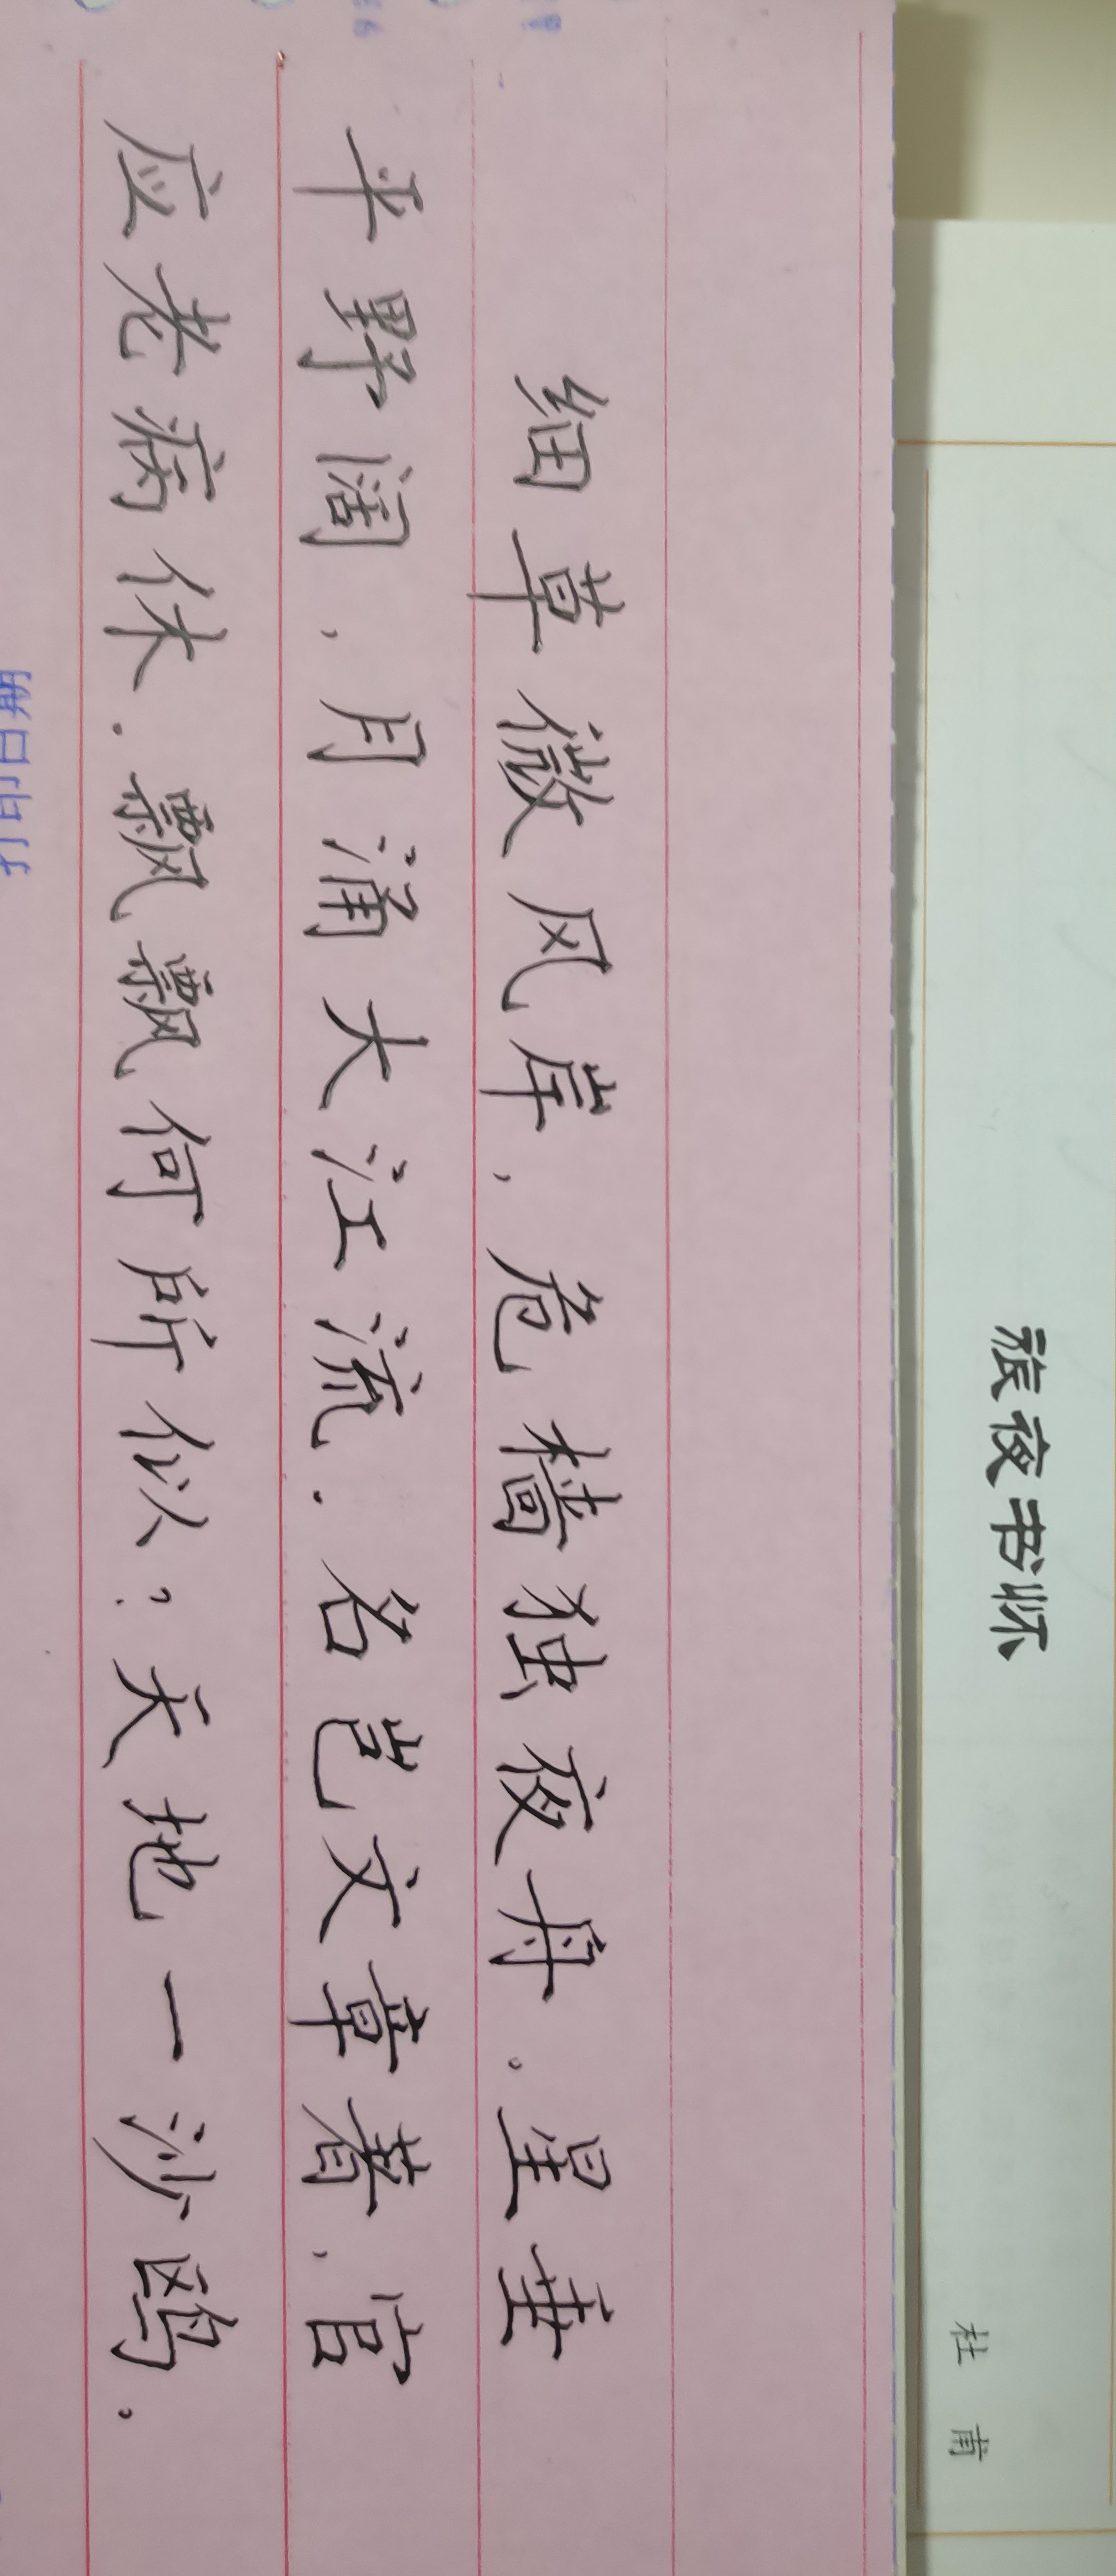 旅夜书怀
杜 甫
细草微风岸，危樯独夜舟。星垂
平野阔，月涌大江流．名岂文章著，官
应老病休．飘飘何所似？天地一沙鸥，
打印日期